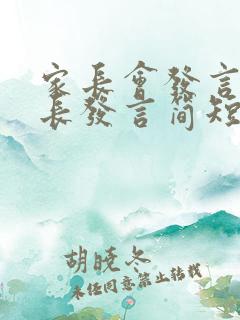 家长會發言
长發言简短
胡晓冬
未经同意禁止转载